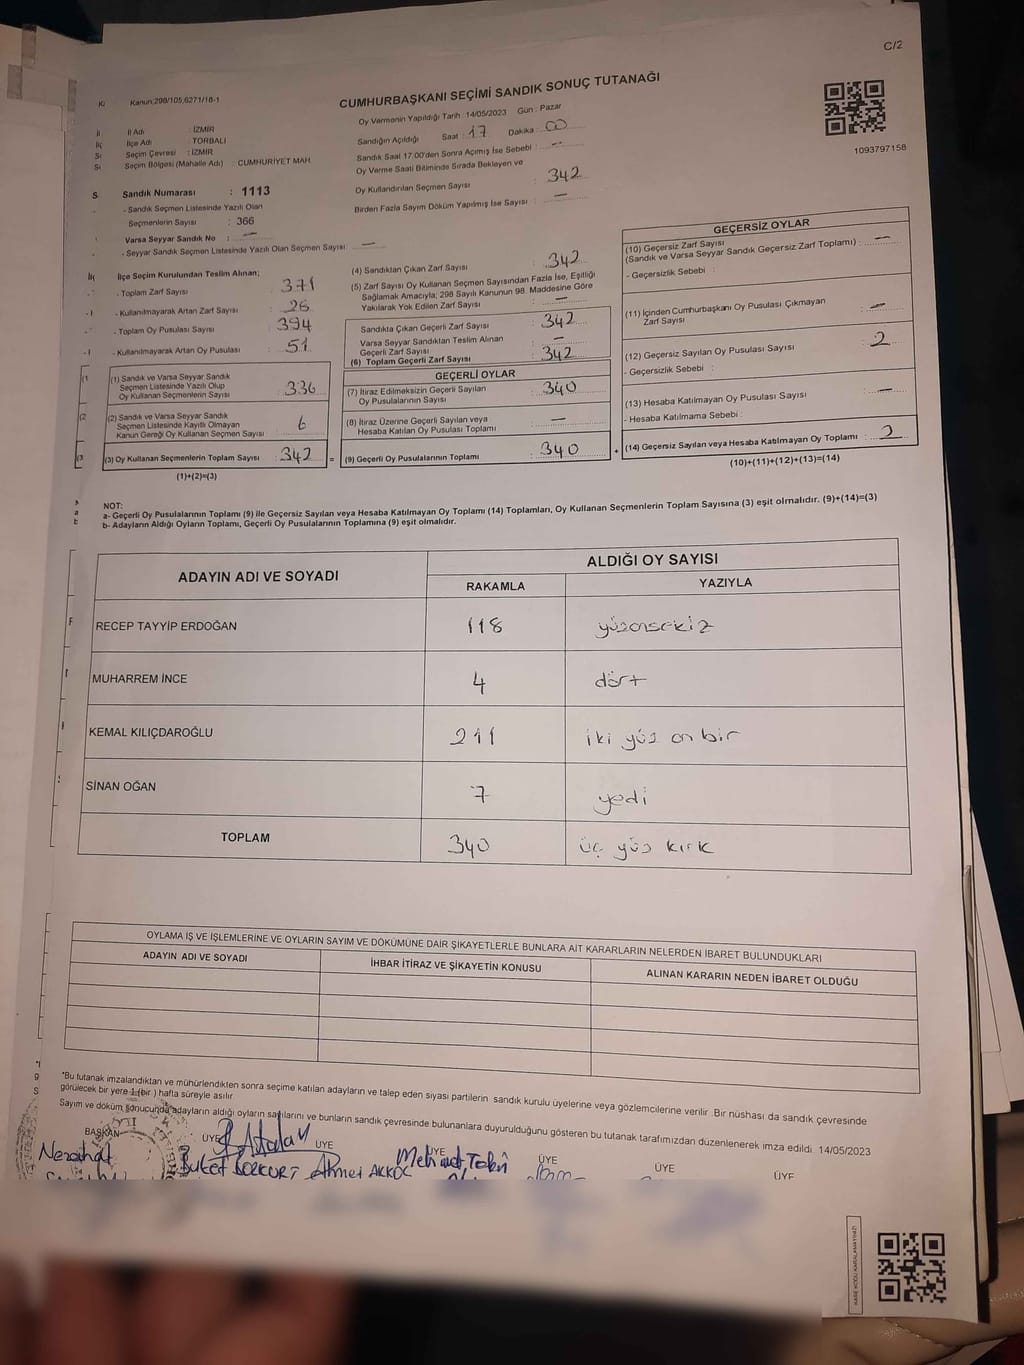 C/2
Kanun;298/105,6271/18-1
CUMHURBAŞKANI SEÇİMİ SANDIK SONUÇ TUTANAĞI
1093797158
İl Adı : İZMİR
İlçe Adı : TORBALI
Seçim Çevresi : İZMİR
Seçim Bölgesi (Mahalle Adı) : CUMHURİYET MAH.
Sandık Numarası : 1113
- Sandık Seçmen Listesinde Yazılı Olan
Seçmenlerin Sayısı : 366
Varsa Seyyar Sandık No : —
- Seyyar Sandık Seçmen Listesinde Yazılı Olan Seçmen Sayısı: —
Oy Vermenin Yapıldığı Tarih :14/05/2023 Gün : Pazar
Sandığın Açıldığı Saat : 17 Dakika : 00
Sandık Saat 17.00'den Sonra Açılmış İse Sebebi : —
Oy Verme Saati Bitiminde Sırada Bekleyen ve
Oy Kullandırılan Seçmen Sayısı : 342
Birden Fazla Sayım Döküm Yapılmış İse Sayısı : —
İlçe Seçim Kurulundan Teslim Alınan;
- Toplam Zarf Sayısı : 371
- Kullanılmayarak Artan Zarf Sayısı : 26
- Toplam Oy Pusulası Sayısı : 394
- Kullanılmayarak Artan Oy Pusulası : 51
(1) Sandık ve Varsa Seyyar Sandık
Seçmen Listesinde Yazılı Olup
Oy Kullanan Seçmenlerin Sayısı : 336
(2) Sandık ve Varsa Seyyar Sandık
Seçmen Listesinde Kayıtlı Olmayan
Kanun Gereği Oy Kullanan Seçmen Sayısı : 6
(3) Oy Kullanan Seçmenlerin Toplam Sayısı : 342 =
(1)+(2)=(3)
(4) Sandıktan Çıkan Zarf Sayısı : 342
(5) Zarf Sayısı Oy Kullanan Seçmen Sayısından Fazla İse, Eşitliği
Sağlamak Amacıyla; 298 Sayılı Kanunun 98. Maddesine Göre
Yakılarak Yok Edilen Zarf Sayısı : —
Sandıkta Çıkan Geçerli Zarf Sayısı : 342
Varsa Seyyar Sandıktan Teslim Alınan
Geçerli Zarf Sayısı : —
(6) Toplam Geçerli Zarf Sayısı : 342
GEÇERLİ OYLAR
(7) İtiraz Edilmeksizin Geçerli Sayılan
Oy Pusulalarının Sayısı : 340
(8) İtiraz Üzerine Geçerli Sayılan veya
Hesaba Katılan Oy Pusulaları Toplamı : —
(9) Geçerli Oy Pusulalarının Toplamı : 340 +
GEÇERSİZ OYLAR
(10) Geçersiz Zarf Sayısı
(Sandık ve Varsa Seyyar Sandık Geçersiz Zarf Toplamı) : —
- Geçersizlik Sebebi :
(11) İçinden Cumhurbaşkanı Oy Pusulası Çıkmayan
Zarf Sayısı : —
(12) Geçersiz Sayılan Oy Pusulası Sayısı : 2
- Geçersizlik Sebebi :
(13) Hesaba Katılmayan Oy Pusulası Sayısı : —
- Hesaba Katılmama Sebebi :
(14) Geçersiz Sayılan veya Hesaba Katılmayan Oy Toplamı : 2
(10)+(11)+(12)+(13)=(14)
NOT:
a- Geçerli Oy Pusulalarının Toplamı (9) ile Geçersiz Sayılan veya Hesaba Katılmayan Oy Toplamı (14) Toplamları, Oy Kullanan Seçmenlerin Toplam Sayısına (3) eşit olmalıdır. (9)+(14)=(3)
b- Adayların Aldığı Oyların Toplamı, Geçerli Oy Pusulalarının Toplamına (9) eşit olmalıdır.
ADAYIN ADI VE SOYADI
ALDIĞI OY SAYISI
RAKAMLA YAZIYLA
RECEP TAYYİP ERDOĞAN 118 yüzonsekiz
MUHARREM İNCE 4 dört
KEMAL KILIÇDAROĞLU 211 iki yüz on bir
SİNAN OĞAN 7 yedi
TOPLAM 340 üç yüz kırk
OYLAMA İŞ VE İŞLEMLERİNE VE OYLARIN SAYIM VE DÖKÜMÜNE DAİR ŞİKAYETLERLE BUNLARA AİT KARARLARIN NELERDEN İBARET BULUNDUKLARI
ADAYIN ADI VE SOYADI İHBAR İTİRAZ VE ŞİKAYETİN KONUSU ALINAN KARARIN NEDEN İBARET OLDUĞU
*Bu tutanak imzalandıktan ve mühürlendikten sonra seçime katılan adayların ve talep eden siyasi partilerin sandık kurulu üyelerine veya gözlemcilerine verilir. Bir nüshası da sandık çevresinde
görülecek bir yere 1 (bir ) hafta süreyle asılır.
Sayım ve döküm sonucunda adayların aldığı oyların sayılarını ve bunların sandık çevresinde bulunanlara duyurulduğunu gösteren bu tutanak tarafımızdan düzenlenerek imza edildi. 14/05/2023
BAŞKAN ÜYE ÜYE ÜYE ÜYE ÜYE ÜYE
Nezahat Buket BOZKURT Ahmet AKKOÇ Mehmet